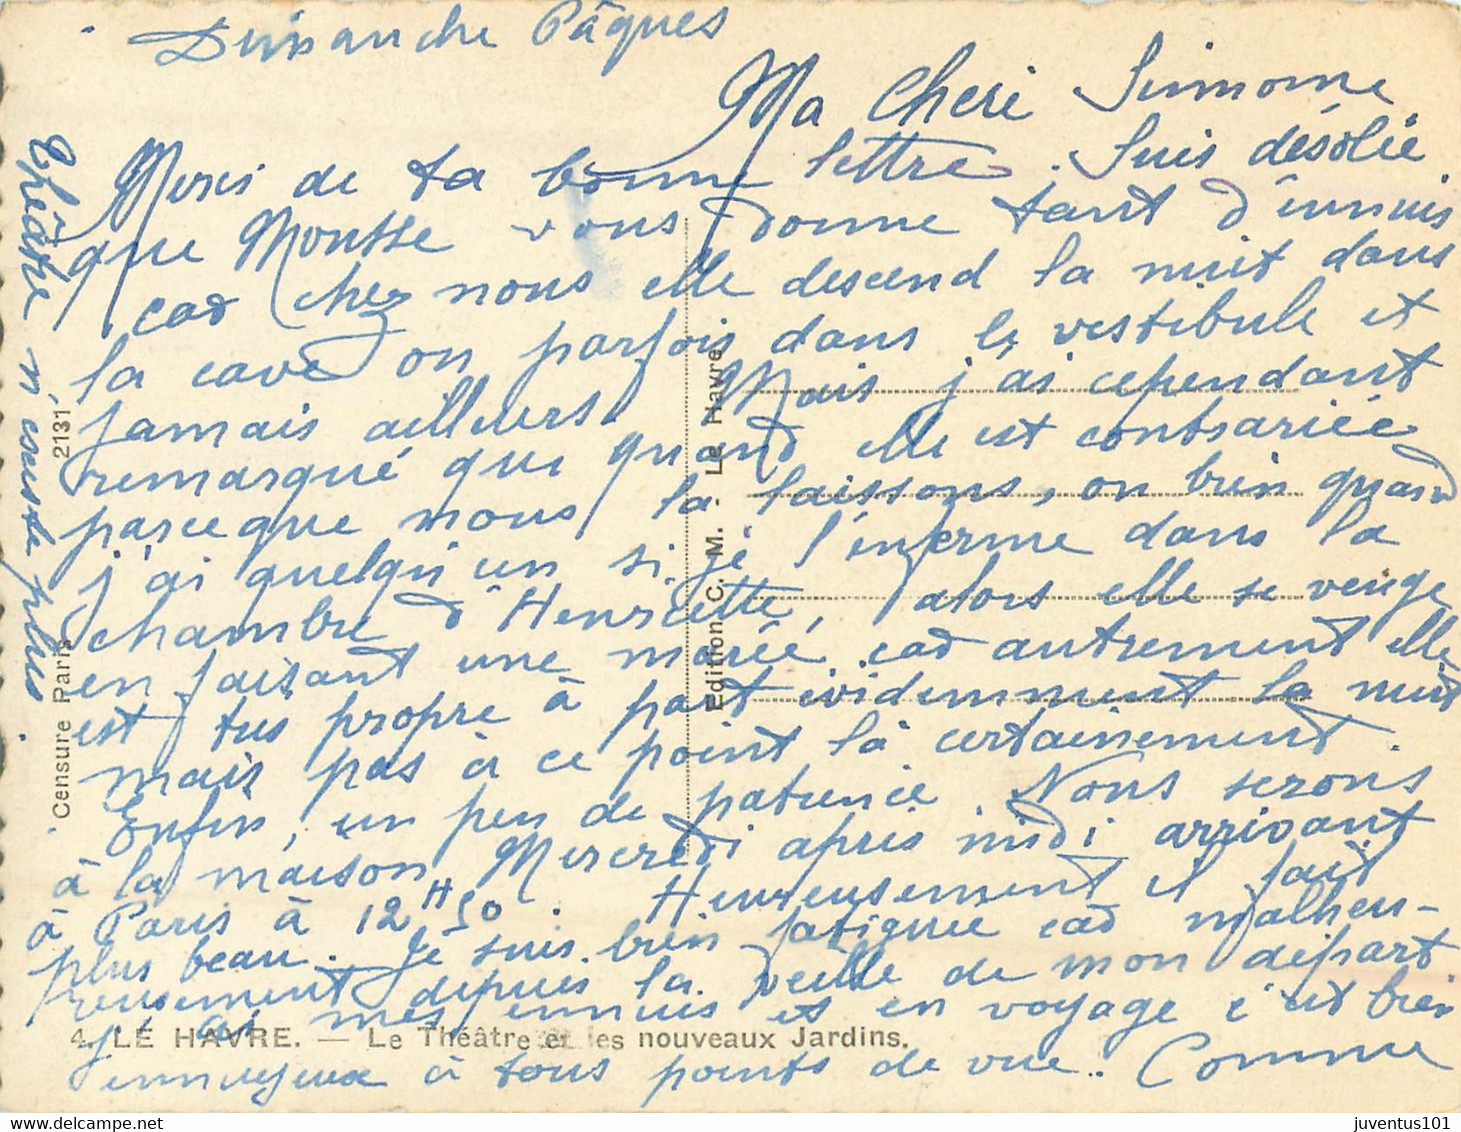 Dimanche Pâques
Ma Cheri Simone
Merci de ta bonne lettre. Suis désolée
que Mousse vous donne tant d'ennuis
car chez nous elle descend la nuit dans
la cave ou parfois dans le vestibule et
jamais ailleurs. Mais j'ai cependant
remarqué que quand elle est contrariée
parceque nous la laissons, ou bien quand
j'ai quelqu'un si je l'enferme dans la
chambre d'Henriette, alors elle se venge
en faisant une marée, car autrement elle
est tres propre à part évidemment la nuit
mais pas à ce point là certainement.
Enfin, un peu de patience. Nous serons
à la maison Mercredi après midi arrivant
à Paris à 12H50. Heureusement il fait
plus beau. Je suis bien fatiguée car malheu-
reusement depuis la veille de mon départ
j'ai mes ennuis et en voyage c'est bien
ennuyeux à tous points de vue. Comme
Théâtre n'existe plus.
Censure Paris 2131
Edition C. M. - Le Havre
4. LE HAVRE. — Le Théâtre et les nouveaux Jardins.
juventus101